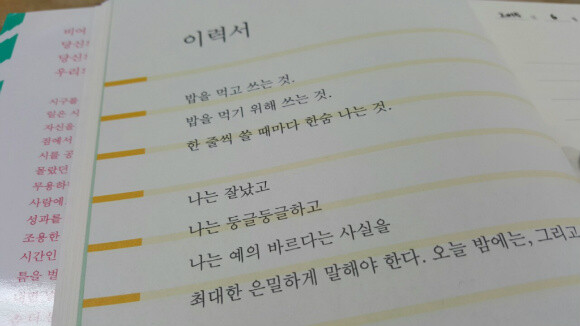 이력서
밥을 먹고 쓰는 것.
밥을 먹기 위해 쓰는 것.
한 줄씩 쓸 때마다 한숨 나는 것.
나는 잘났고
나는 둥글둥글하고
나는 예의 바르다는 사실을
최대한 은밀하게 말해야 한다. 오늘 밤에는, 그리고
비어
당신!
당신!
우리!
지구를
잃은 시
자신을
곁에서
시를 공
돌팠던
무용하
사람에
성과를
조용한
시간인
틈을 벌